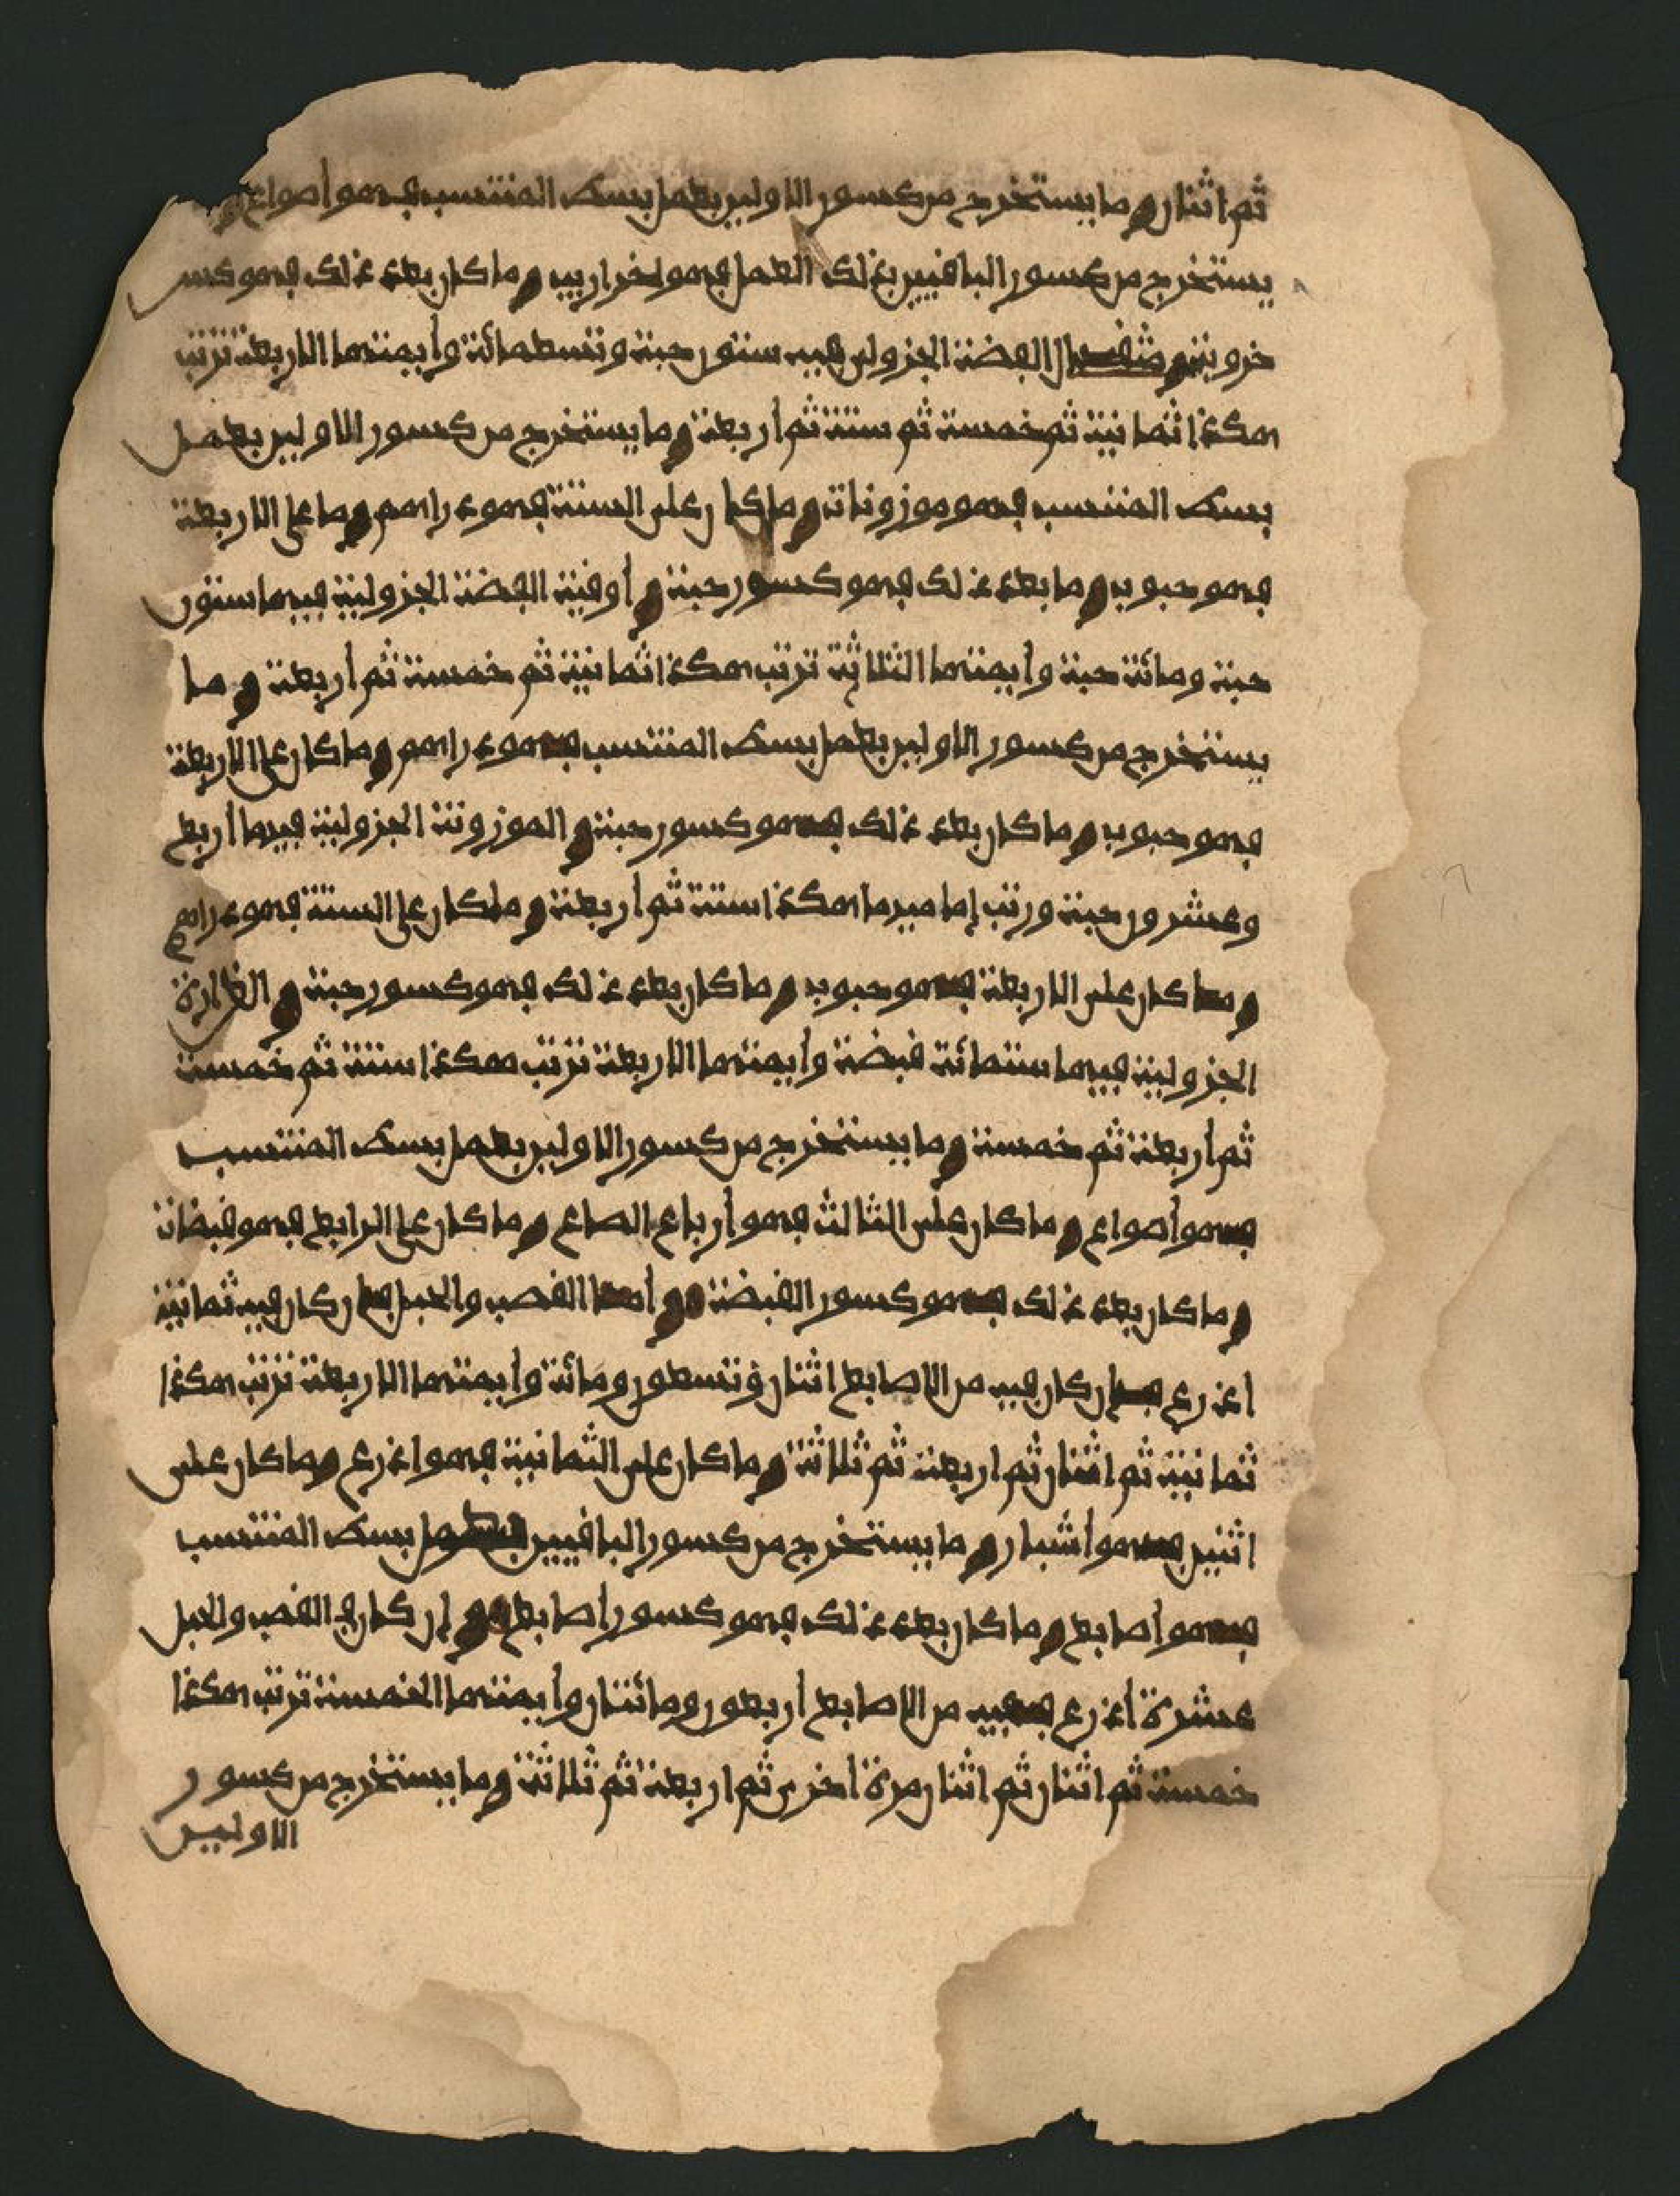 ثم اثنان وما يستخرج من كسور الاولين بعمل بسط المنتسب فهو أصواع وما
يستخرج من كسور الباقيين بذلك العمل فهو لخراريب وما كان بعد ذلك فهو كسر
خروبة ومثقال الفضة الجزولي فيه ستون حبة وتسعمائة وأيمتها الاربعة ترتب
هكذا ثمانية ثم خمسة ثم ستة ثم أربعة وما يستخرج من كسور الاولين بعمل
بسط المنتسب فهو موزونات وما كان على الستة فهو دراهم وما على الاربعة
فهو حبوب وما بعد ذلك فهو كسور حبة وأوقية الفضة الجزولية فيها ستون
حبة ومائة حبة وأيمتها الثلاثة ترتب هكذا ثمانية ثم خمسة ثم أربعة وما
يستخرج من كسور الاولين بعمل بسط المنتسب فهو دراهم وما كان على الاربعة
فهو حبوب وما كان بعد ذلك فهو كسور حبة والموزونة الجزولية فيها أربع
وعشرون حبة ورتب إماميها هكذا ستة ثم أربعة وما كان على الستة فهو دراهم
وما كان على الاربعة فهو حبوب وما كان بعد ذلك فهو كسور حبة والغرارة
الجزولية فيها ستمائة قبضة وأيمتها الاربعة ترتب هكذا ستة ثم خمسة
ثم أربعة ثم خمسة وما يستخرج من كسور الاولين بعمل بسط المنتسب
فهو أصواع وما كان على الثالث فهو أرباع الصاع وما كان على الرابع فهو قبضات
وما كان بعد ذلك فهو كسور القبضة وأما القصب والحبل فإن كان فيه ثمانية
اذرع فإن كان فيه من الاصابع اثنان وتسعون ومائة وأيمتها الاربعة ترتب هكذا
ثمانية ثم اثنان ثم اربعة ثم ثلاثة وما كان على الثمانية فهو اذرع وما كان على
اثنين فهو أشبار وما يستخرج من كسور الباقيين بعمل بسط المنتسب
فهو أصابع وما كان بعد ذلك فهو كسور اصابع وإن كان في القصب والحبل
عشرة أذرع ففيه من الاصابع اربعون ومائتان وأيمتها الخمسة ترتب هكذا
خمسة ثم اثنان ثم اثنان مرة اخرى ثم اربعة ثم ثلاثة وما يستخرج من كسور
الاولين